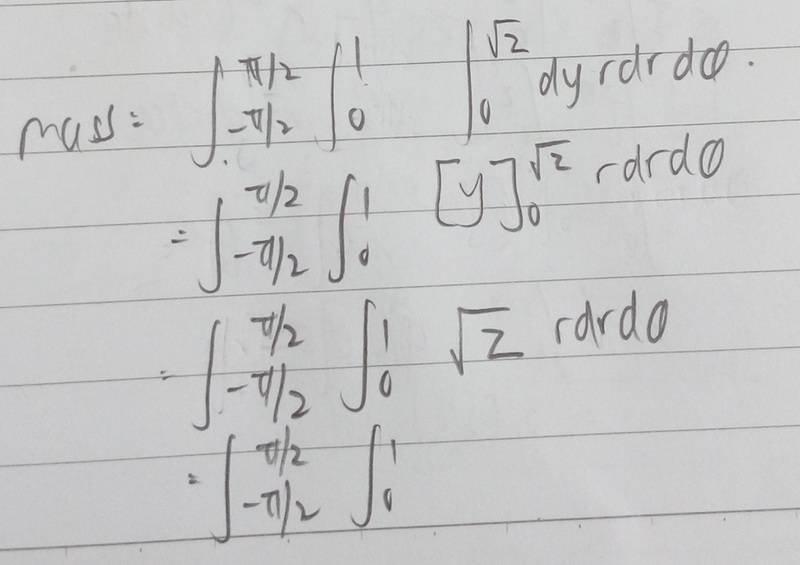 mass = ∫_{-π/2}^{π/2} ∫_0^1 ∫_0^{√2} dy r dr dθ.
= ∫_{-π/2}^{π/2} ∫_0^1 [y]_0^{√2} r dr dθ
= ∫_{-π/2}^{π/2} ∫_0^1 √2 r dr dθ
= ∫_{-π/2}^{π/2} ∫_0^1